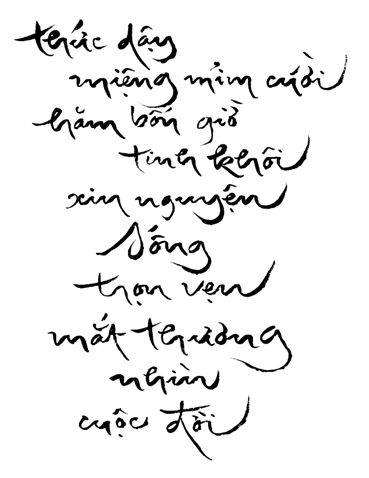 thức dậy
miệng mỉm cười
hăm bốn giờ
tinh khôi
xin nguyện
sống
trọn vẹn
mắt thương
nhìn
cuộc đời